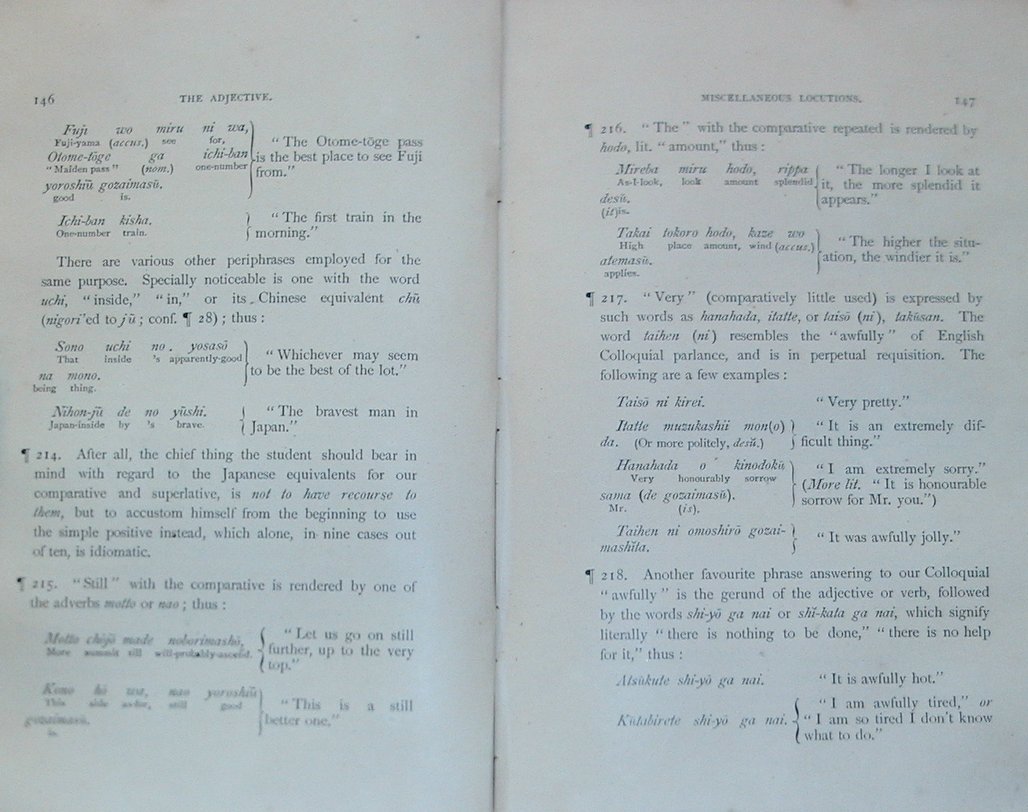 146 THE ADJECTIVE.
Fuji wo miru ni wa,
Fuji-yama (accus.) see for,
Otome-tōge ga ichi-ban
"Maiden pass" (nom.) one-number
yoroshiū gozaimasŭ.
good is.
"The Otome-tōge pass
is the best place to see Fuji
from."
Ichi-ban kisha.
One-number train.
"The first train in the
morning."
There are various other periphrases employed for the
same purpose. Specially noticeable is one with the word
uchi, "inside," "in," or its Chinese equivalent chū
(nigori'ed to jū; conf. ¶ 28); thus:
Sono uchi no. yosasō
That inside 's apparently-good
na mono.
being thing.
"Whichever may seem
to be the best of the lot."
Nihon-jū de no yūshi.
Japan-inside by 's brave.
"The bravest man in
Japan."
¶ 214. After all, the chief thing the student should bear in
mind with regard to the Japanese equivalents for our
comparative and superlative, is not to have recourse to
them, but to accustom himself from the beginning to use
the simple positive instead, which alone, in nine cases out
of ten, is idiomatic.
¶ 215. "Still" with the comparative is rendered by one of
the adverbs motto or nao; thus:
Motto chōjō made noborimashō,
More summit till will-probably-ascend.
"Let us go on still
further, up to the very
top."
Kono hō wa, nao yoroshiū
This side as-for, still good
gozaimasŭ.
is.
"This is a still
better one."
MISCELLANEOUS LOCUTIONS. 147
¶ 216. "The" with the comparative repeated is rendered by
hodo, lit. "amount," thus:
Mireba miru hodo, rippa
As-I-look, look amount splendid
desŭ.
(it)is.
"The longer I look at
it, the more splendid it
appears."
Takai tokoro hodo, kaze wo
High place amount, wind (accus.)
atemasŭ.
applies.
"The higher the situ-
ation, the windier it is."
¶ 217. "Very" (comparatively little used) is expressed by
such words as hanahada, itatte, or taisō (ni), takŭsan. The
word taihen (ni) resembles the "awfully" of English
Colloquial parlance, and is in perpetual requisition. The
following are a few examples:
Taisō ni kirei. "Very pretty."
Itatte muzukashii mon(o)
da. (Or more politely, desŭ.)
"It is an extremely dif-
ficult thing."
Hanahada o kinodokŭ
Very honourably sorrow
sama (de gozaimasŭ).
Mr. (is).
"I am extremely sorry."
(More lit. "It is honourable
sorrow for Mr. you.")
Taihen ni omoshirō gozai-
mashĭta.
"It was awfully jolly."
¶ 218. Another favourite phrase answering to our Colloquial
"awfully" is the gerund of the adjective or verb, followed
by the words shi-yō ga nai or shĭ-kata ga nai, which signify
literally "there is nothing to be done," "there is no help
for it," thus:
Atsŭkute shi-yō ga nai. "It is awfully hot."
Kŭtabirete shi-yō ga nai.
"I am awfully tired," or
"I am so tired I don't know
what to do."